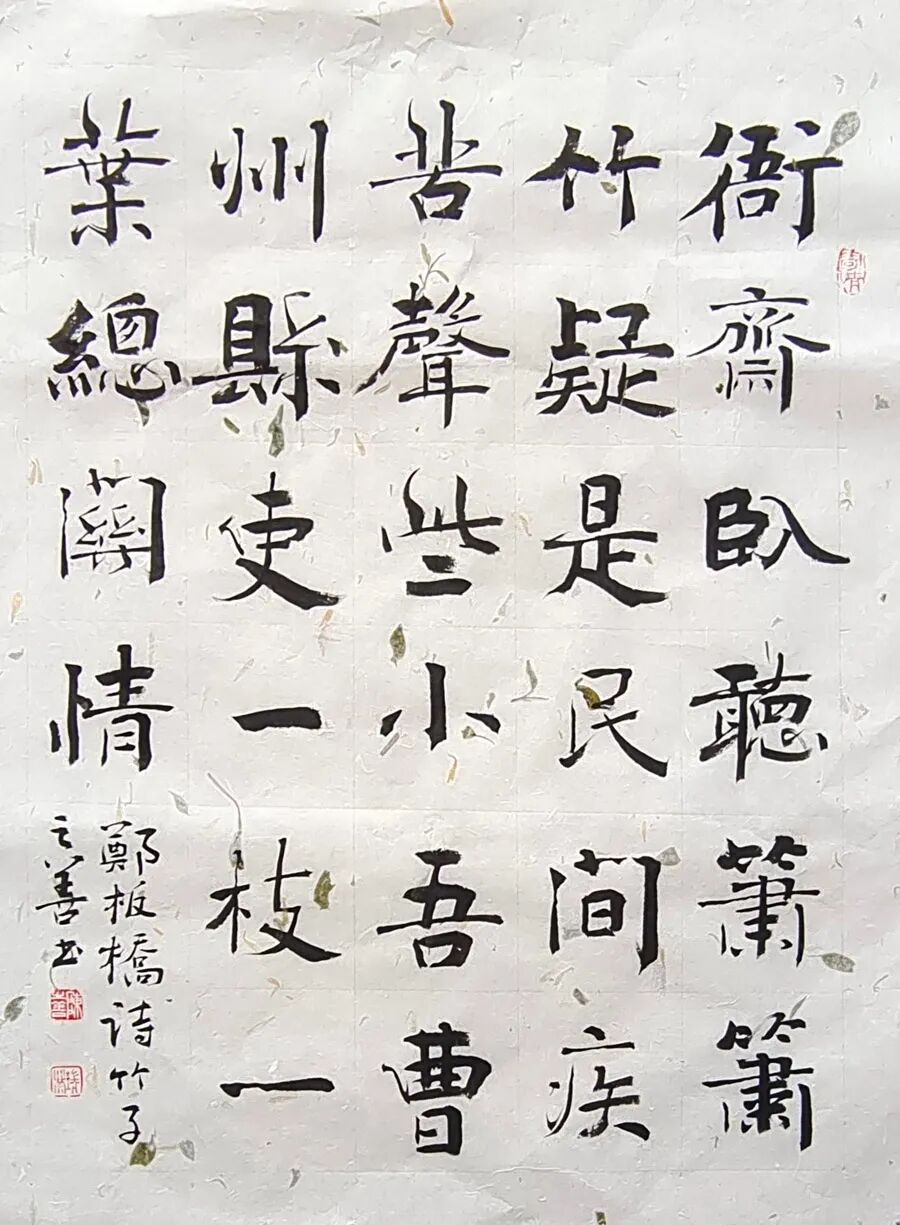 衙齋卧聽蕭簫
竹疑是民間疾
苦聲些小吾曹
州縣吏一枝一
葉總關情
鄭板橋诗竹子
之善书